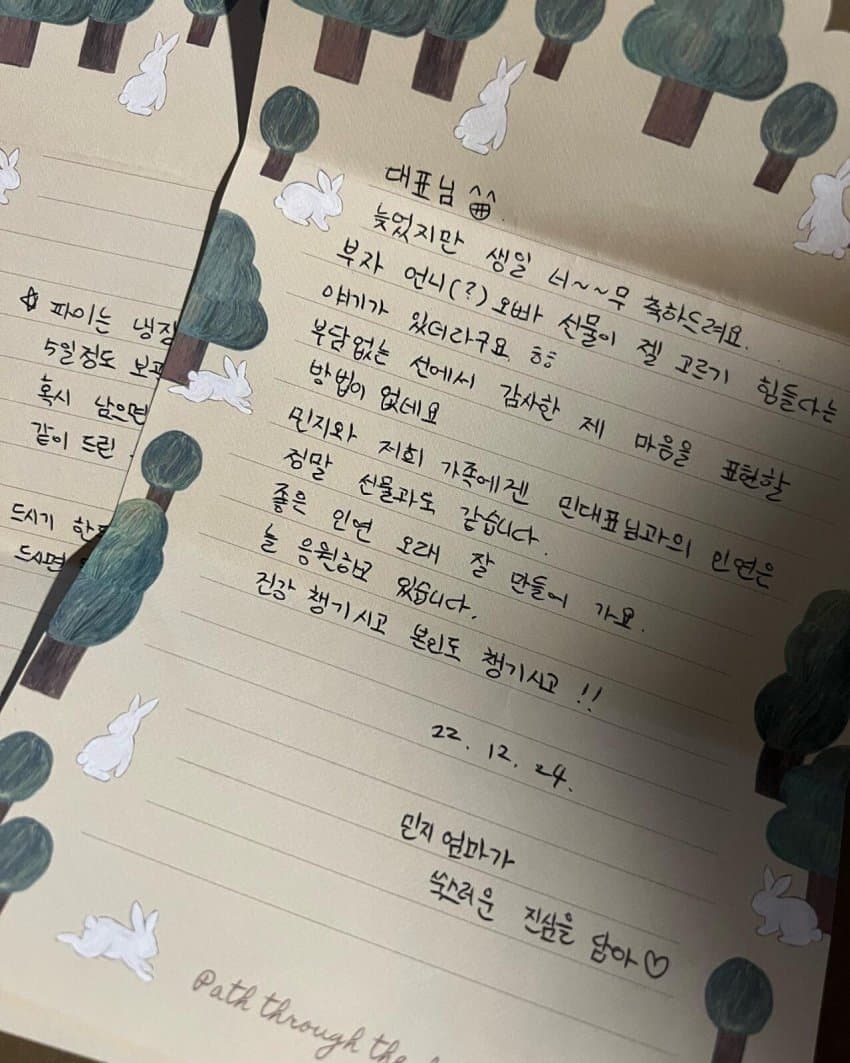 ☆ 파이는 냉장
5일정도 보관
혹시 남으면
같이 드린
드시기 한
드시면
대표님 ^^
늦었지만 생일 너~~무 축하드려요.
부자 언니(?) 오빠 선물이 젤 고르기 힘들다는
얘기가 있더라구요 ㅎㅎ
부담없는 선에서 감사한 제 마음을 표현할
방법이 없네요
민지와 저희 가족에겐 민대표님과의 인연은
정말 선물과도 같습니다.
좋은 인연 오래 잘 만들어 가요.
늘 응원하고 있습니다.
건강 챙기시고 본인도 챙기시고 !!
22. 12. 24.
민지엄마가
쑥스러운 진심을 담아♡
Path through the